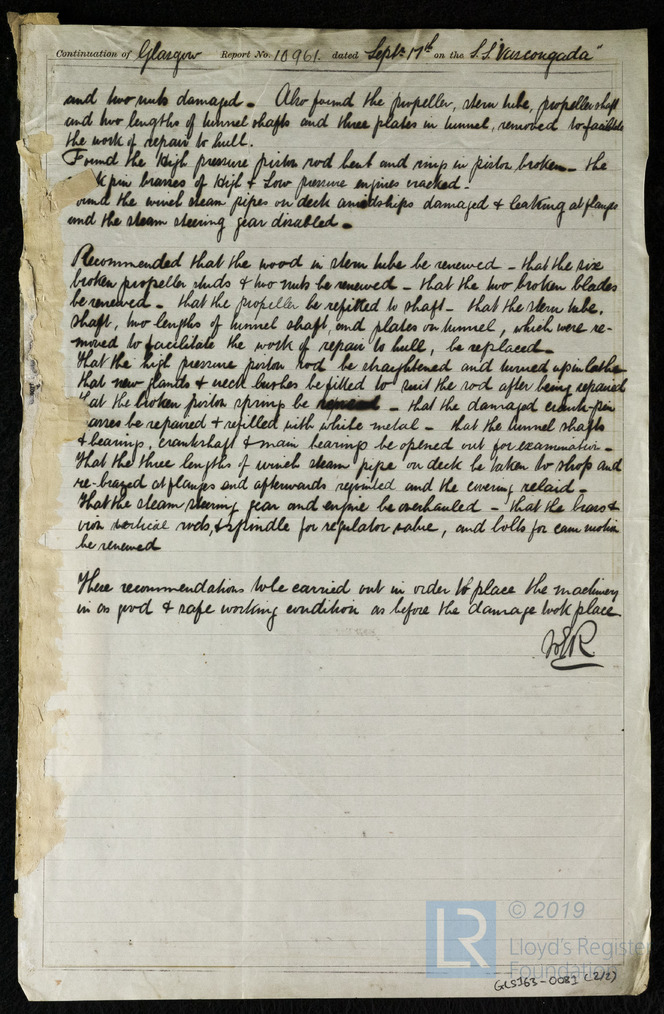 Continuation of Glasgow Report No. 10961. dated Septr 17th on the S.S. "Vascongada"
and two nuts damaged - Also found the propeller, stern tube, propeller shaft
and two lengths of tunnel shafts and three plates in tunnel, removed to facilitate
the work of repair to hull.
Found the High pressure piston rod bent and rings in piston broken - the
k pin brasses of High & Low pressure engines cracked -
ound the winch steam pipes on deck amidships damaged & leaking at flanges
and the steam steering gear disabled -
Recommended that the wood in stern tube be renewed - that the six
broken propeller studs & two nuts be renewed - that the two broken blades
be renewed - that the propeller be refitted to shaft - that the stern tube,
shaft, two lengths of tunnel shaft, and plates on tunnel, which were re-
moved to facilitate the work of repair to hull, be replaced -
that the high pressure piston rod be straightened and turned up in lathe
that new glands & neck bushes be fitted to suit the rod after being repaired
hat the broken piston spring be renewed - that the damaged crank-pin
asses be repaired & refilled with white metal - that the tunnel shafts
& bearing, crankshaft & main bearings be opened out for examination -
That the three lengths of winch steam pipe on deck be taken to shop and
re-brazed at flanges and afterwards rejointed and the covering relaid -
That the steam steering gear and engine be overhauled - that the brass &
iron vertical rods, & spindle for regulator valve, and bolts for cam motion
be renewed
These recommendations to be carried out in order to place the machinery
in as good & safe working condition as before the damage took place
© 2019
LR
Lloyd's Register
Foundation
GLS163-0081 (2/2)